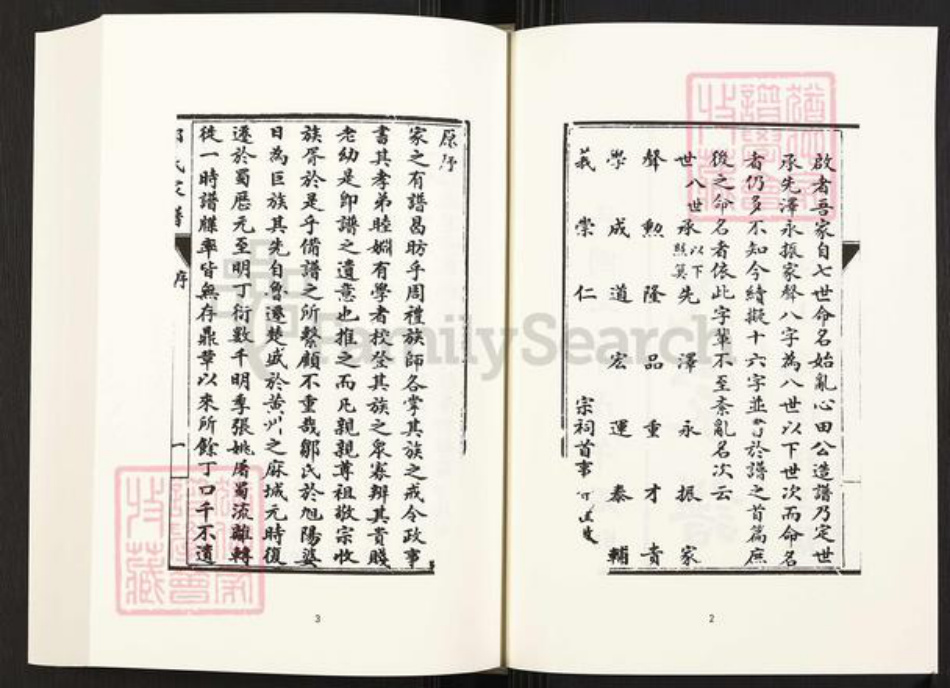 啟者吾家自七世命名始亂心田公造譜乃定世
承先澤永振家聲八字為八世以下世次而命名
者仍多不知今續擬十六字並書於譜之首篇庶
後之命名者依此字輩不至紊亂名次云
世八世承以下先澤永振家
聲勲隆品重才貴
學成道宏運泰輔
義崇仁
宗祠首事
2
原序
家之有譜曷昉乎周禮族師各掌其族之戒令政事
書其孝弟睦婣有學者校登其族之衆寡辨其貴賤
老幼是即譜之遺意也推之而凡親親尊祖敬宗收
族胥於是乎備譜之所繫顧不重哉鄒氏於旭陽婆
日為巨族其先自魯遷楚盛於黃州之麻城元時復
遷於蜀歷元至明丁衍數千明季張姚屠蜀流離轉
徙一時譜牒率皆無存鼎革以來所餘丁口千不遺
氏家譜
序
一
3
FamilySearch